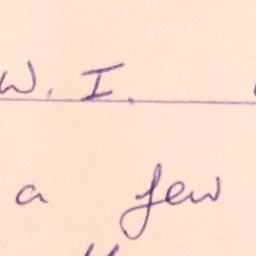 W. I.
a few